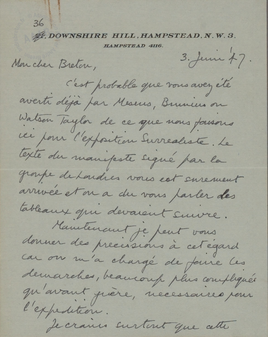 36
21, DOWNSHIRE HILL, HAMPSTEAD, N.W. 3.
HAMPSTEAD 4116.
3 Juin 47.
Mon cher Breton,
C'est probable que vous avez été
averti déjà par Mesens, Brunius ou
Watson Taylor de ce que nous faisons
ici pour l'exposition Surrealiste. Le
texte du manifeste signé par la
groupe de Londres vous est surement
arrivée et on a du vous parler des
tableaux qui devaient suivre.
Maintenant je peut vous
donner des precisions à cet égard
car on m'a chargé de faire les
demarches, beaucoup plus compliqués
qu'avant guère, necessaires pour
l'expedition.
Je crains surtout que cette